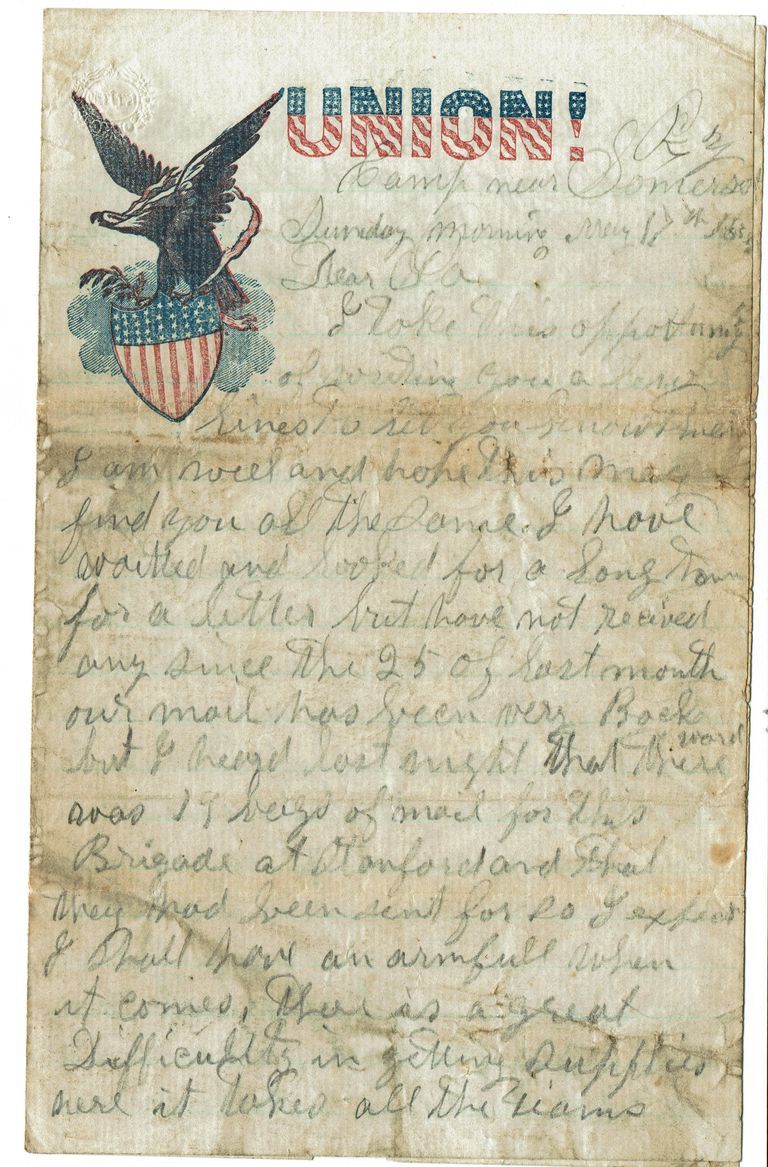 UNION!
Ky
Camp near Somerset
Sunday morning May 17th
Dear
I take this oppotunity
of writing you a few
lines to let you know that
I am well and hope this may
find you all the same. I have
waitted and looked for a long time
for a letter but have not recived
any since the 25 of last month
our mail has been very Back
ward
but I heard last night that there
was 19 bags of mail for this
Brigade at Stanford and that
they had been sent for so I expect
I shall have an armfull when
it comes, there is a great
Difficulty in getting supplies
here it takes all the teams